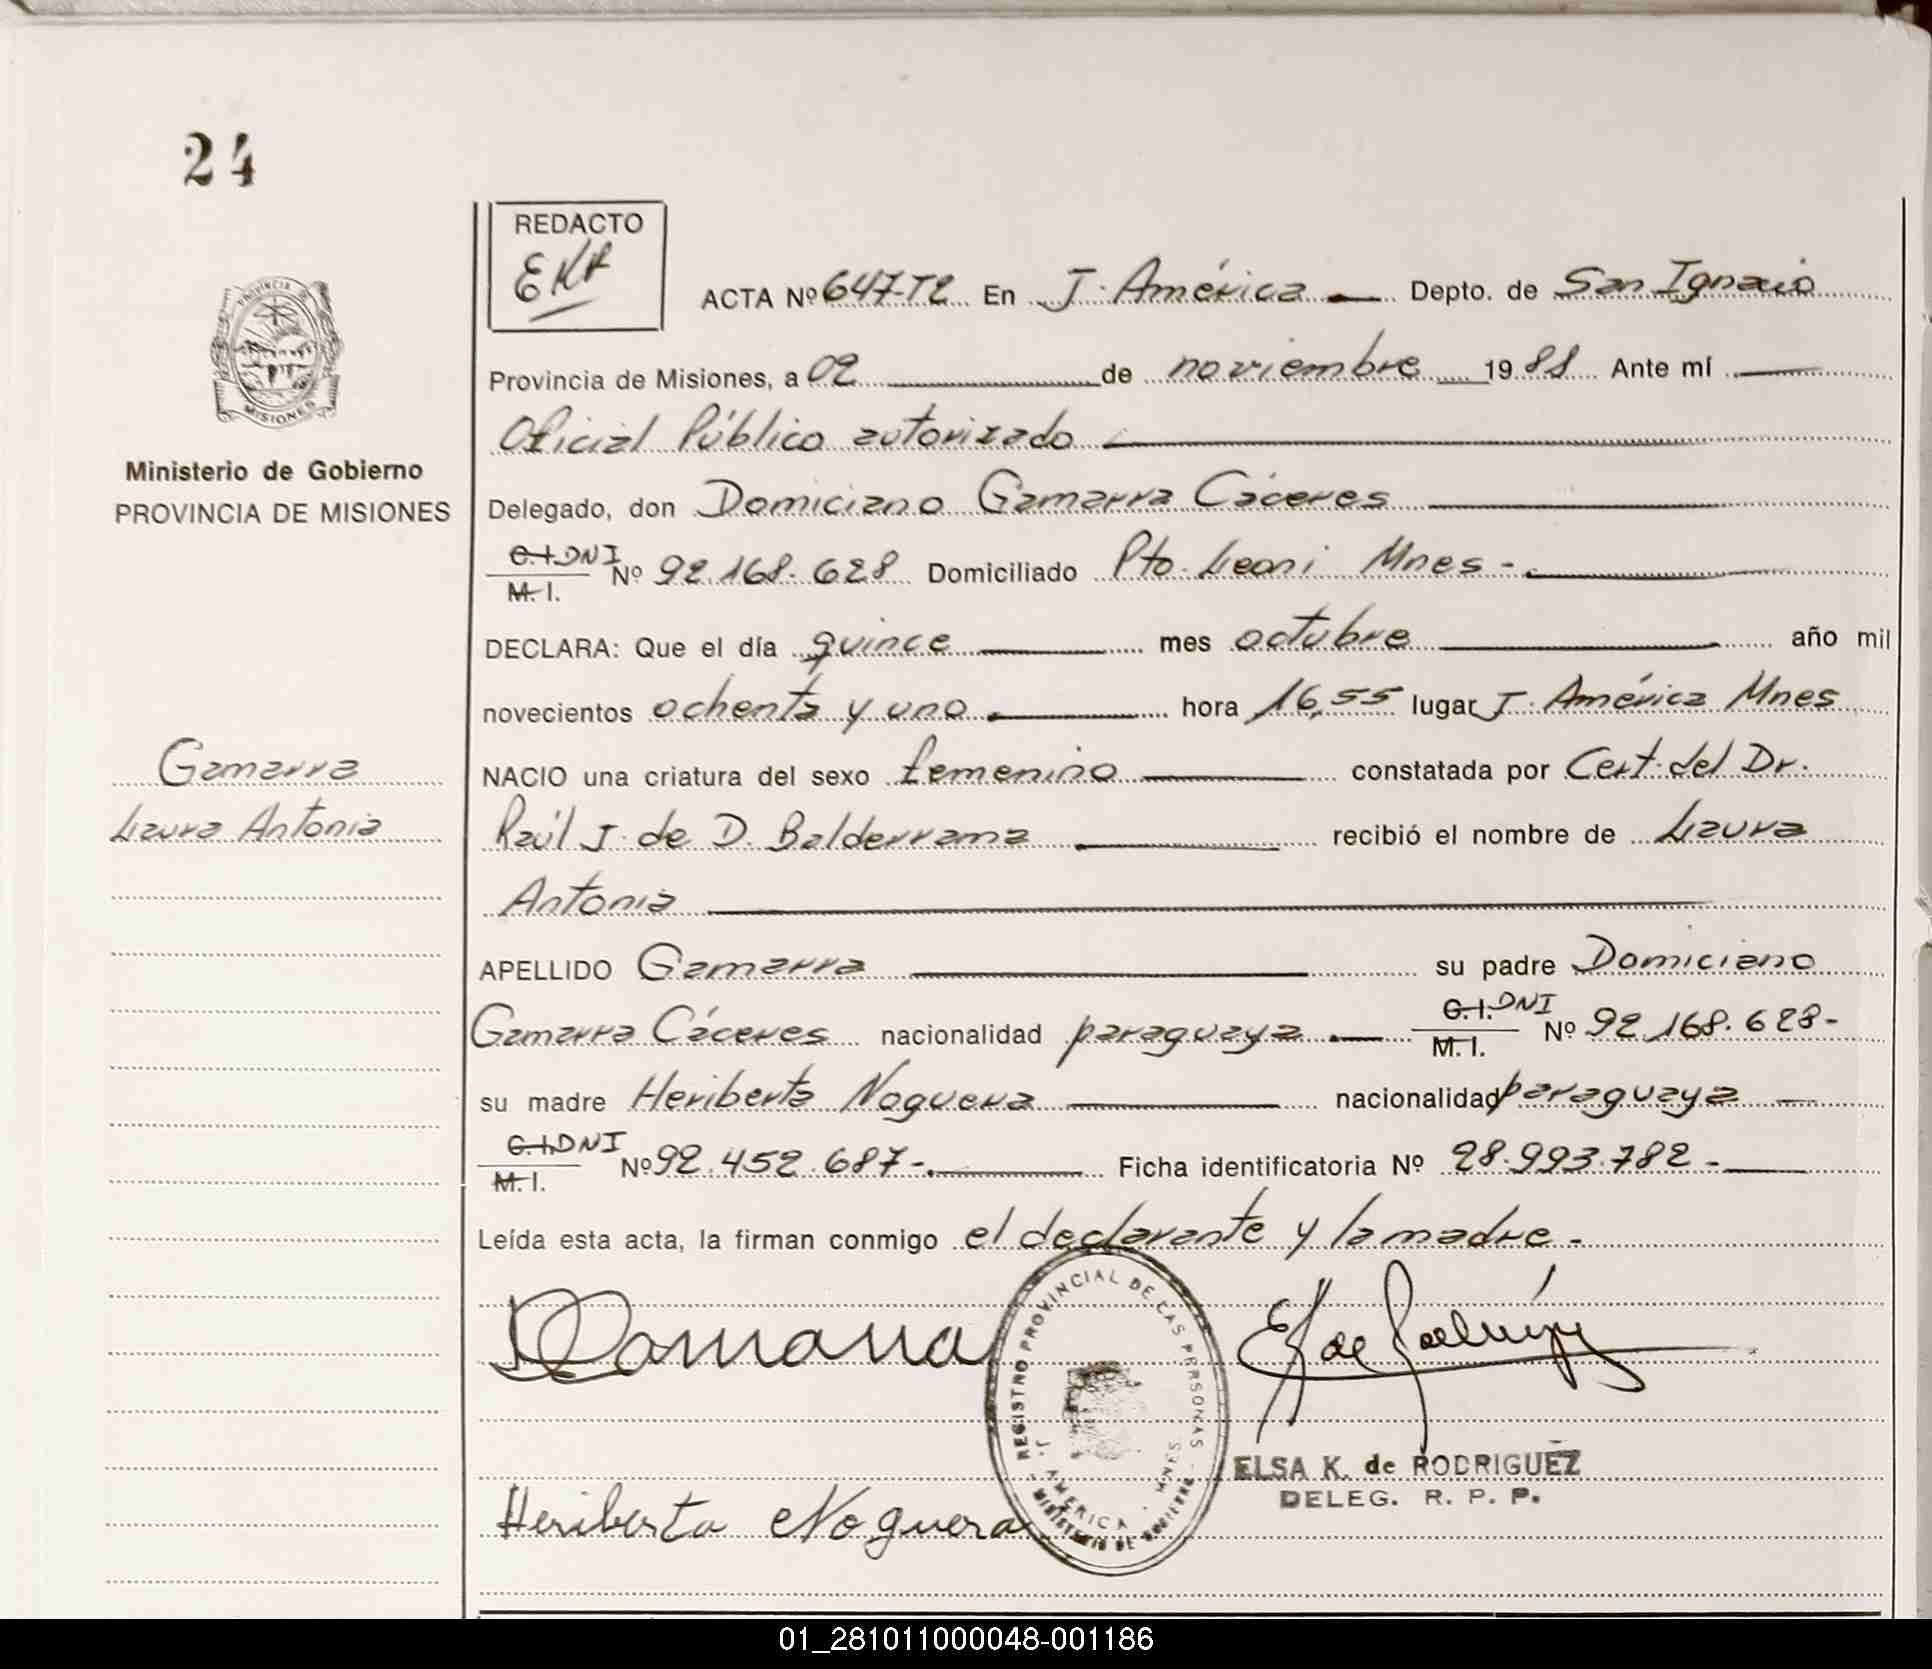 24
REDACTO
EKR
ACTA Nº 647-T2 En J. América Depto. de San Ignacio
PROVINCIA DE
MISIONES
Provincia de Misiones, a 02 de noviembre 1988 Ante mí
Oficial Público autorizado
Ministerio de Gobierno
PROVINCIA DE MISIONES
Delegado, don Domiciano Gamarra Cáceres
C.I. DNI
M. I. Nº 92.168.628 Domiciliado Pto. Leoni Mnes -
DECLARA: Que el día quince mes octubre año mil
novecientos ochenta y uno hora 16,55 lugar J. América Mnes
Gamarra
Laura Antonia
NACIO una criatura del sexo femenino constatada por Cert. del Dr.
Raúl J. de D. Balderrama recibió el nombre de Laura
Antonia
APELLIDO Gamarra su padre Domiciano
Gamarra Cáceres nacionalidad paraguaya C.I. DNI
M. I. Nº 92.168.628-
su madre Heriberta Noguera nacionalidad paraguaya
C.I. DNI
M. I. Nº 92.452.687- Ficha identificatoria Nº 28.993.782-
Leída esta acta, la firman conmigo el declarante y la madre-
REGISTRO PROVINCIAL DE LAS PERSONAS
J. AMERICA - MNES
MINISTERIO DE GOBIERNO
E K de Rodríguez
ELSA K. de RODRIGUEZ
DELEG. R. P. P.
Heriberta Noguera
01_281011000048-001186